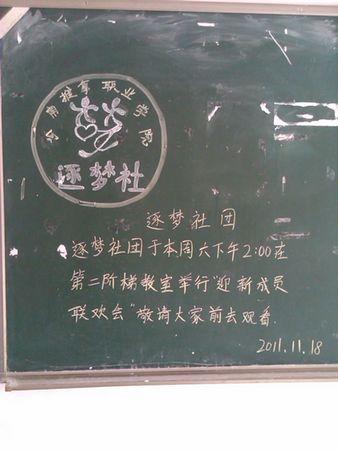 推拿职业学院
逐梦社
逐梦社团
逐梦社团于本周六下午2:00在
第二阶梯教室举行“迎新成员
联欢会”敬请大家前去观看.
2011.11.18